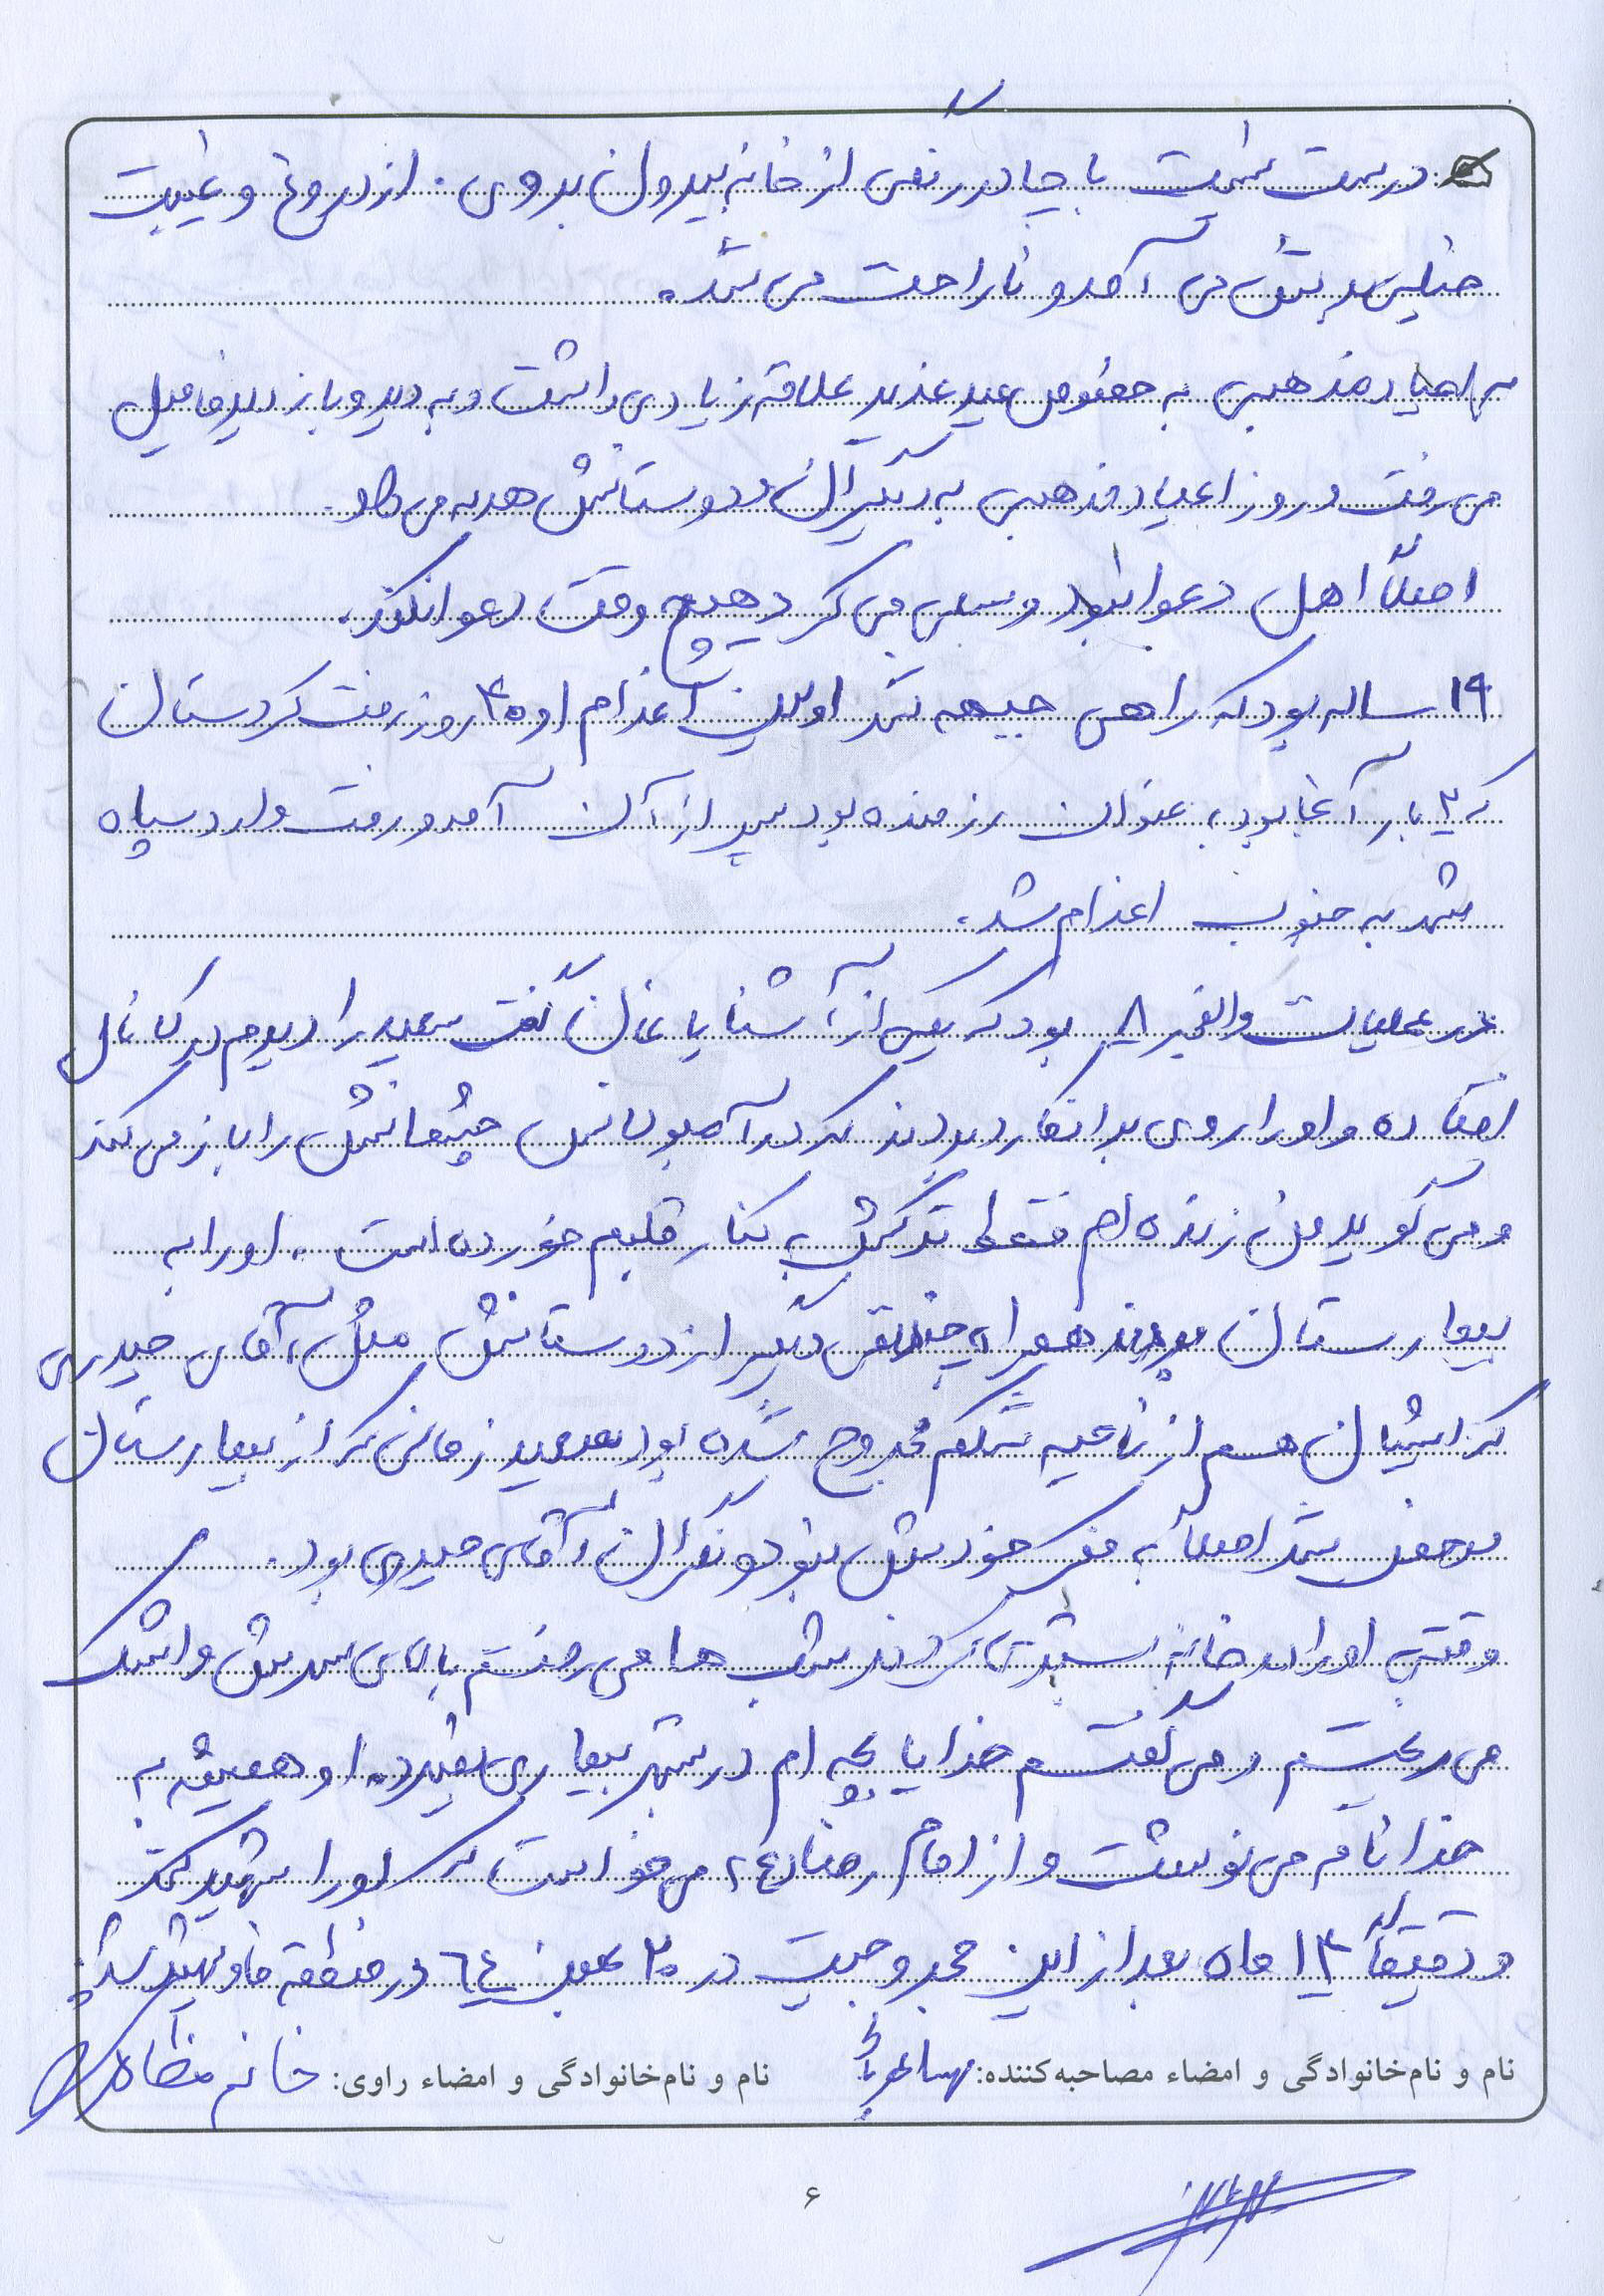 درست نیست با چادر رنگی از خانه بیرون بروی. از دروغ و غیبت
خیلی بدش می آمد و ناراحت می شد.
به اعیاد مذهبی به خصوص عید غدیر علاقه زیادی داشت و به دید و بازدید فامیل
می رفت در روز اعیاد مذهبی به دیگران و دوستانش هدیه می داد.
اصلاً اهل دعوا نبود و سعی می کرد هیچ وقت دعوا نکند.
۱۹ ساله بود که راهی جبهه شد اولین اعزام او ۴۵ روز رفت کردستان
که ۲ بار آنجا بود به عنوان رزمنده بود پس از آن آمد و رفت وارد سپاه
شد به جنوب اعزام شد.
در عملیات والفجر ۸ بود که یکی از آشنایانمان گفت سعید را دیدم در کانال
افتاده و او را روی برانکارد بردند که در آمبولانس چشمانش را باز می کند
و می گوید من زنده ام فقط ترکش به کنار قلبم خورده است. او را به
بیمارستان بردند همراه چند نفر دیگر از دوستانش مثل آقای حیدری
که ایشان هم از ناحیه شکم مجروح شده بود سعید زمانی که از بیمارستان
مرخص شد اصلاً به فکر خودش نبود و نگران آقای حیدری بود.
وقتی او را در خانه بستری کردند شب ها می رفتم بالای سرش و اشک
می ریختم و می گفتم خدایا بچه ام در شهر بیماری نمیرد. او همیشه به
خدا نامه می نوشت و از امام رضا (ع) می خواست که او را شهید کند
و دقیقاً ۱۳ ماه بعد از این مجروحیت در ۲۰ بهمن ٦٤ در منطقه فاو شهید شد.
نام و نام‌خانوادگی و امضاء مصاحبه‌کننده: نام و نام‌خانوادگی و امضاء راوی: خانم
۶